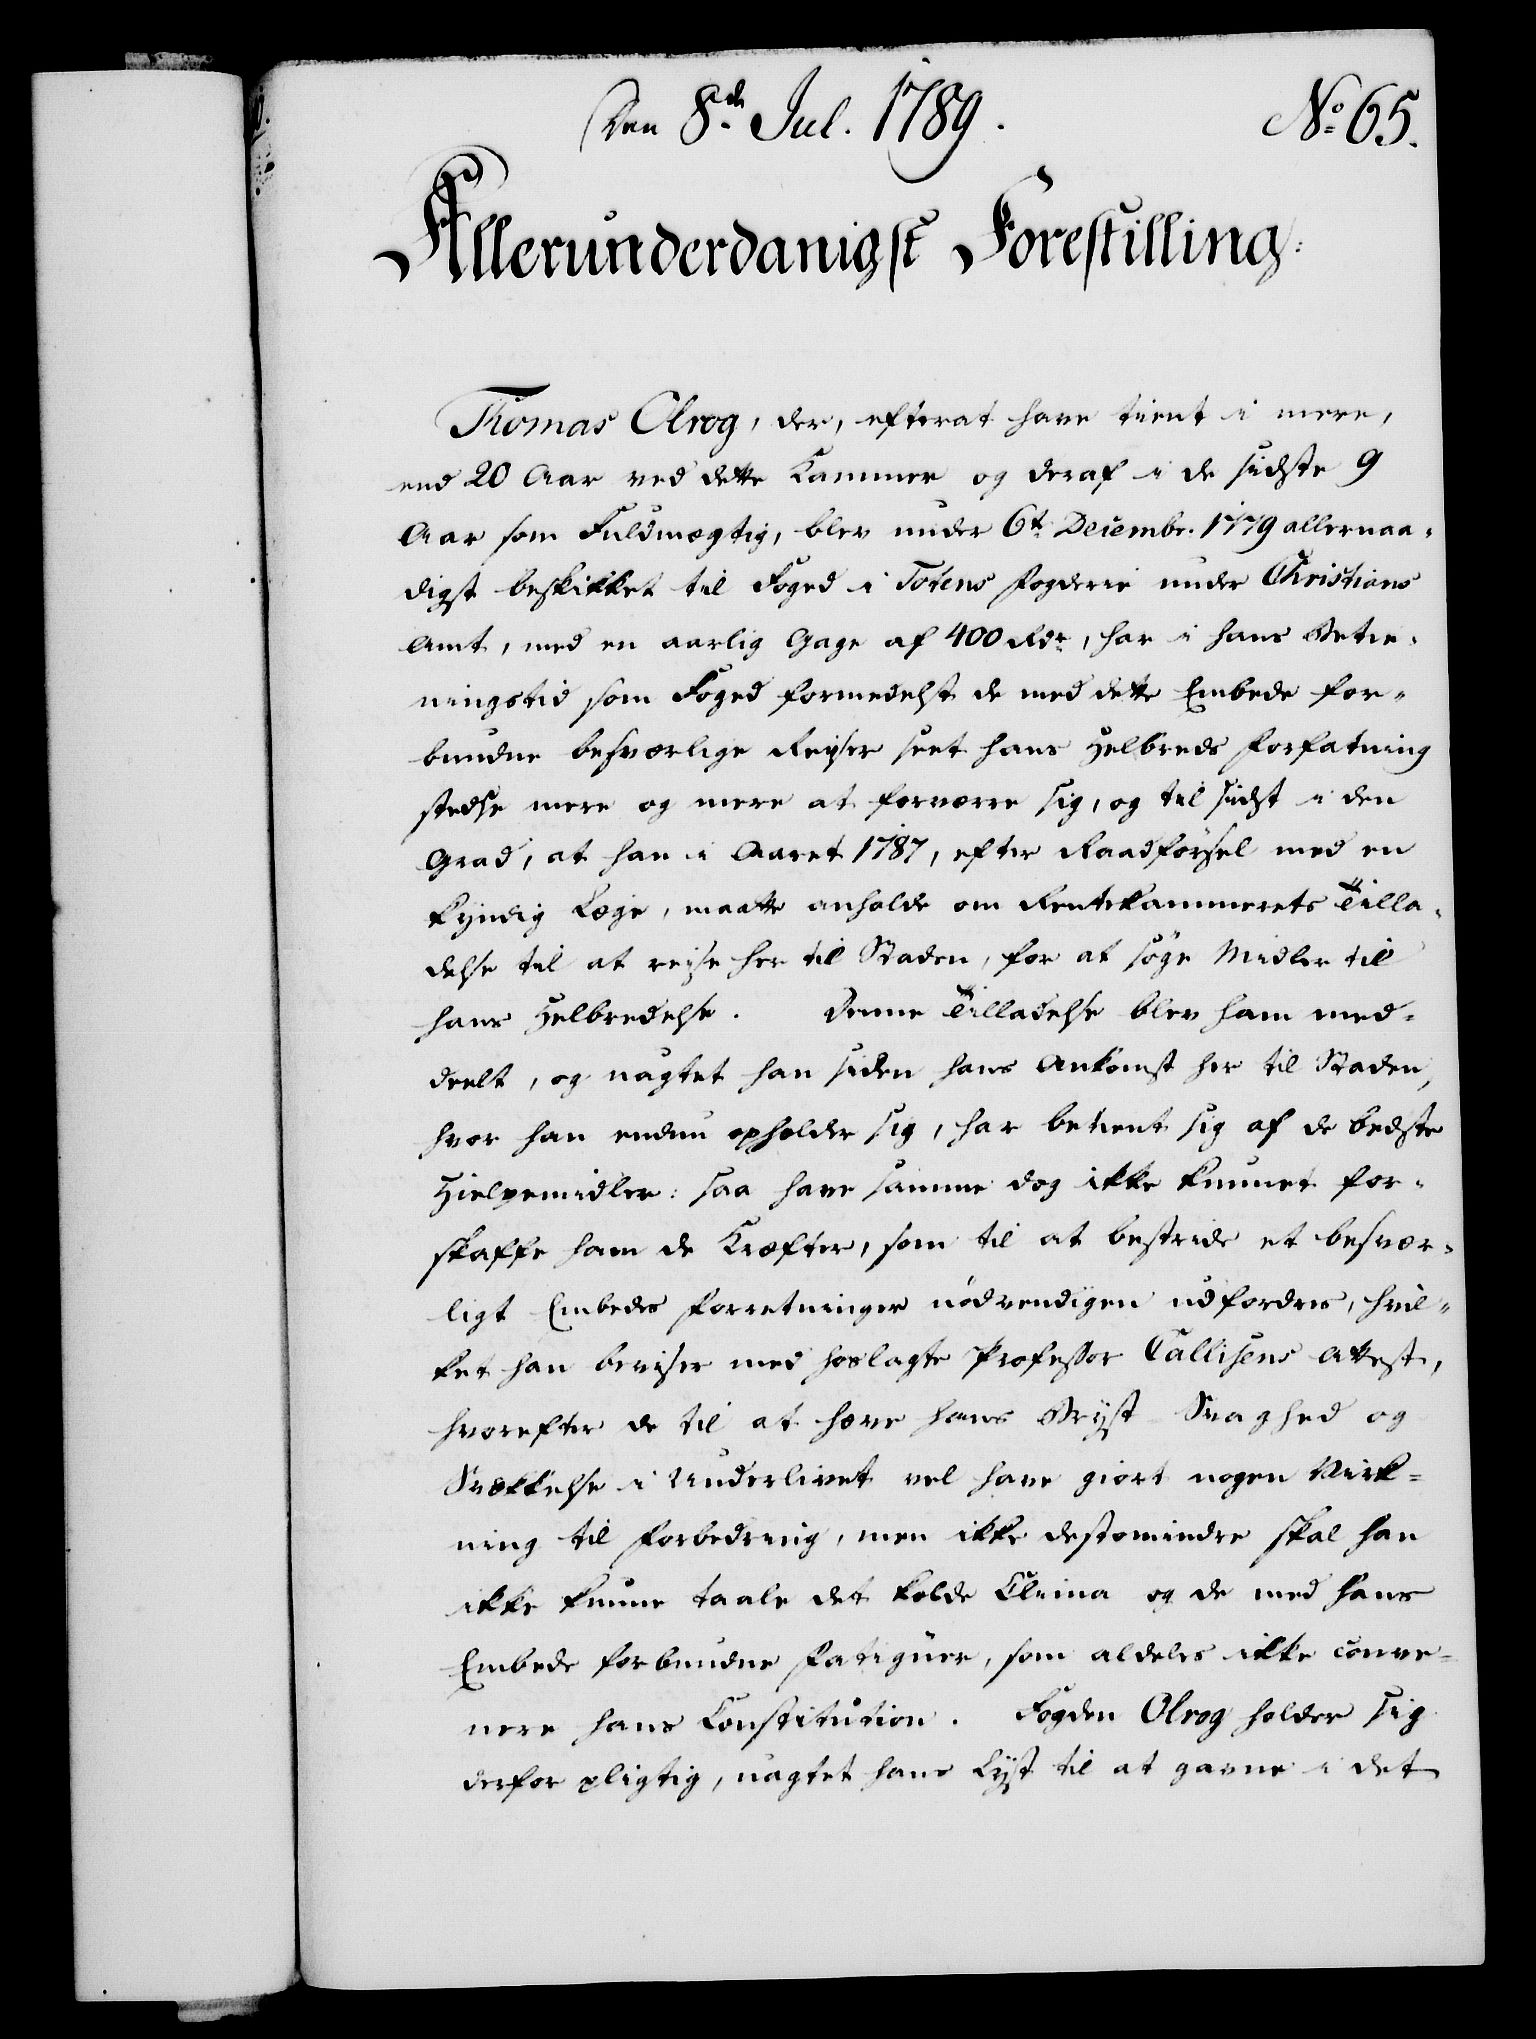 Den 8de Jul. 1789.
No 65.
Allerunderdanigst Forestilling.
Thomas Olrog, der, efterat have tient i mere,
end 20 Aar ved dette Kammer og deraf i de sidste 9
Aar som Fuldmægtig, blev under 6t Decembr. 1779 allernaa-
digst beskikket til Foged i Totens Fogderie under Christians
Amt, med en aarlig Gage af 400 Rdr, har i hans Betie-
ningstid som Foged formedelst de med dette Embede for-
bundne besværlige Reyser seet hans Helbreds Forfatning
stedse mere og mere at forværre sig, og til sidst i den
Grad, at han i Aaret 1787, efter Raadførsel med en
kyndig Læge, maatte anholde om Rentekammerets Tilla-
delse til at reyse her til Staden, for at søge Midler til
hans Helbredelse. Denne Tilladelse blev ham med-
deelt, og uagtet han siden hans Ankomst her til Staden,
hvor han endnu opholder sig, har betient sig af de bedste
Hielpemidler: saa have samme dog ikke kunnet for-
skaffe ham de Kræfter, som til at bestride et besvær-
ligt Embedes Forretninger nødvendigen udfordres, hvil-
ket han beviser med hoslagte Professor Callisens Attest,
hvorefter de til at hæve hans Bryst-Svaghed og
Svækkelse i Underlivet vel have giort nogen Virk-
ning til Forbedring, men ikke destomindre skal han
ikke kunne taale det kolde Clima og de med hans
Embede forbundne Fatiguer, som aldeles ikke conve-
nere hans Constitution. Fogden Olrog holder sig
derfor pligtig, uagtet hans Lyst til at gavne i det